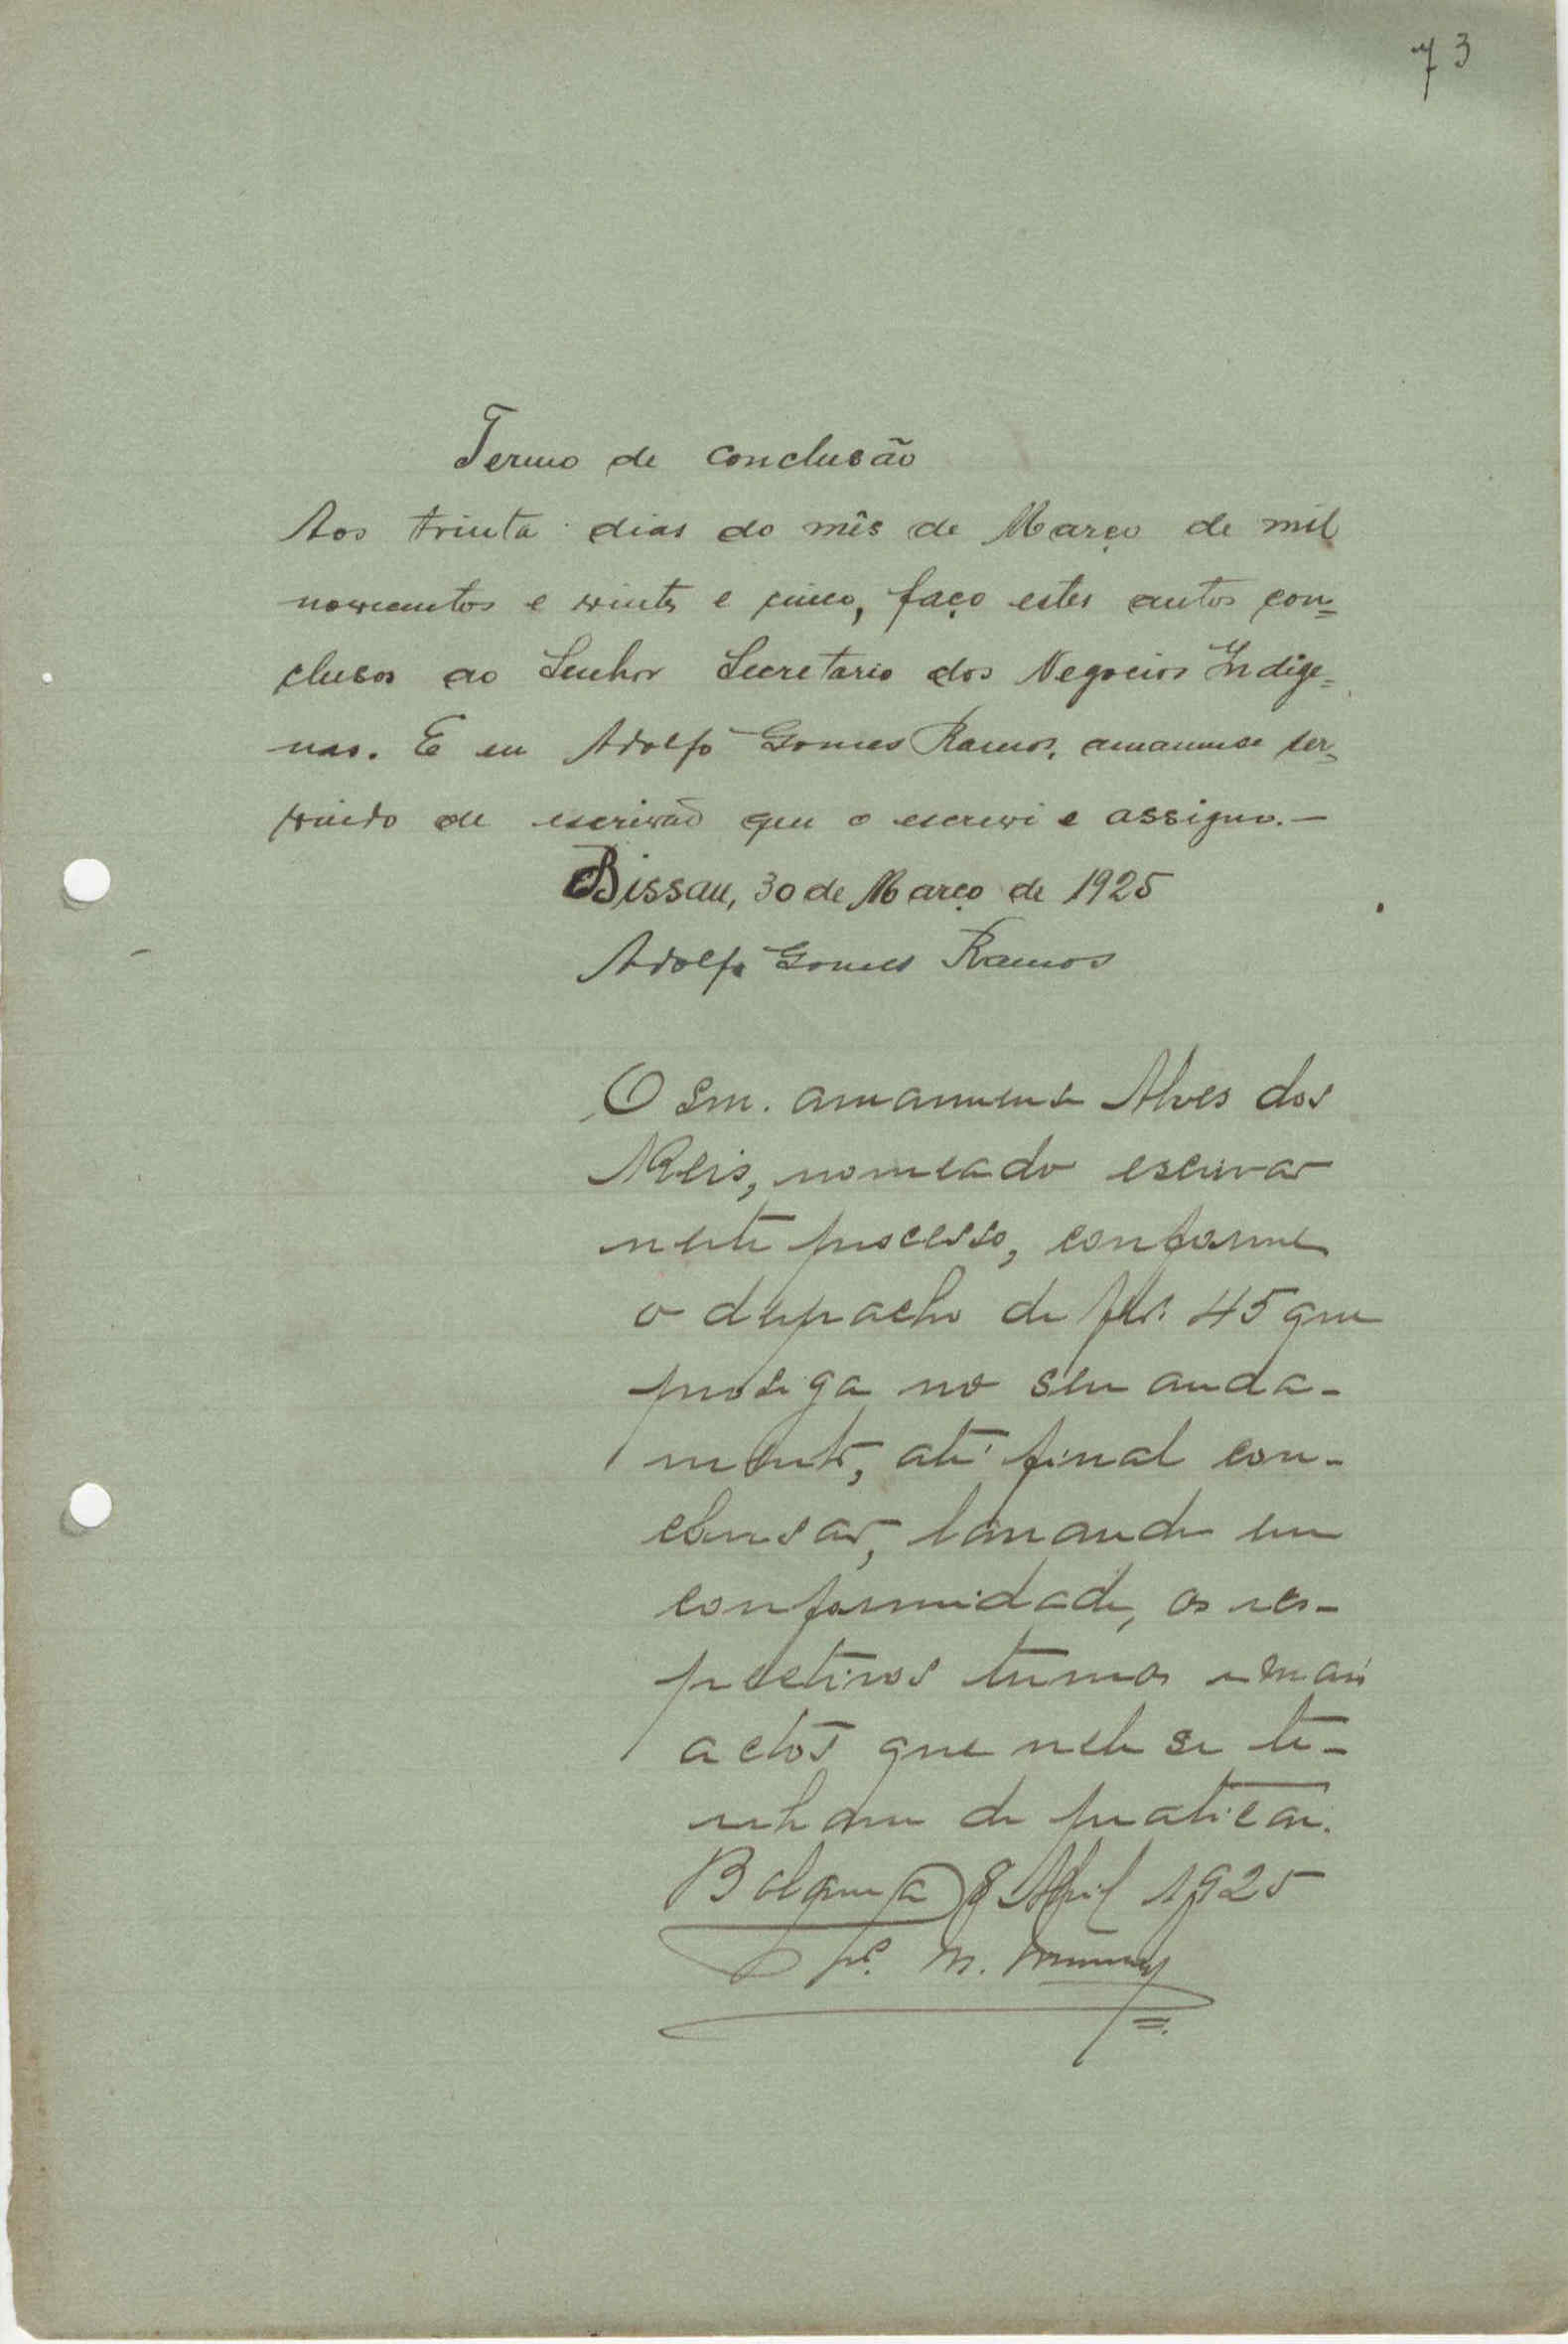 73
Termo de conclusão
Aos trinta dias do mês de Março de mil
novecentos e vinte e cinco, faço estes autos con=
clusos ao Senhor Secretario dos Negocios Indige=
nas. E eu Adolfo Gomes Ramos, amanuense ser=
vindo de escrivão que o escrevi e assigno.—
Bissau, 30 de Março de 1925
Adolfo Gomes Ramos
O snr. amanuense Alves dos
Reis, nomeado escrivão
neste processo, conforme
o despacho de fls. 45 que
prosiga no seu anda-
mento, até final con-
clusão, lavrando em
conformidade, os res-
pectivos termos e mais
actos que nele se te-
nham de praticar.
Bolama 8 Abril 1925
M.